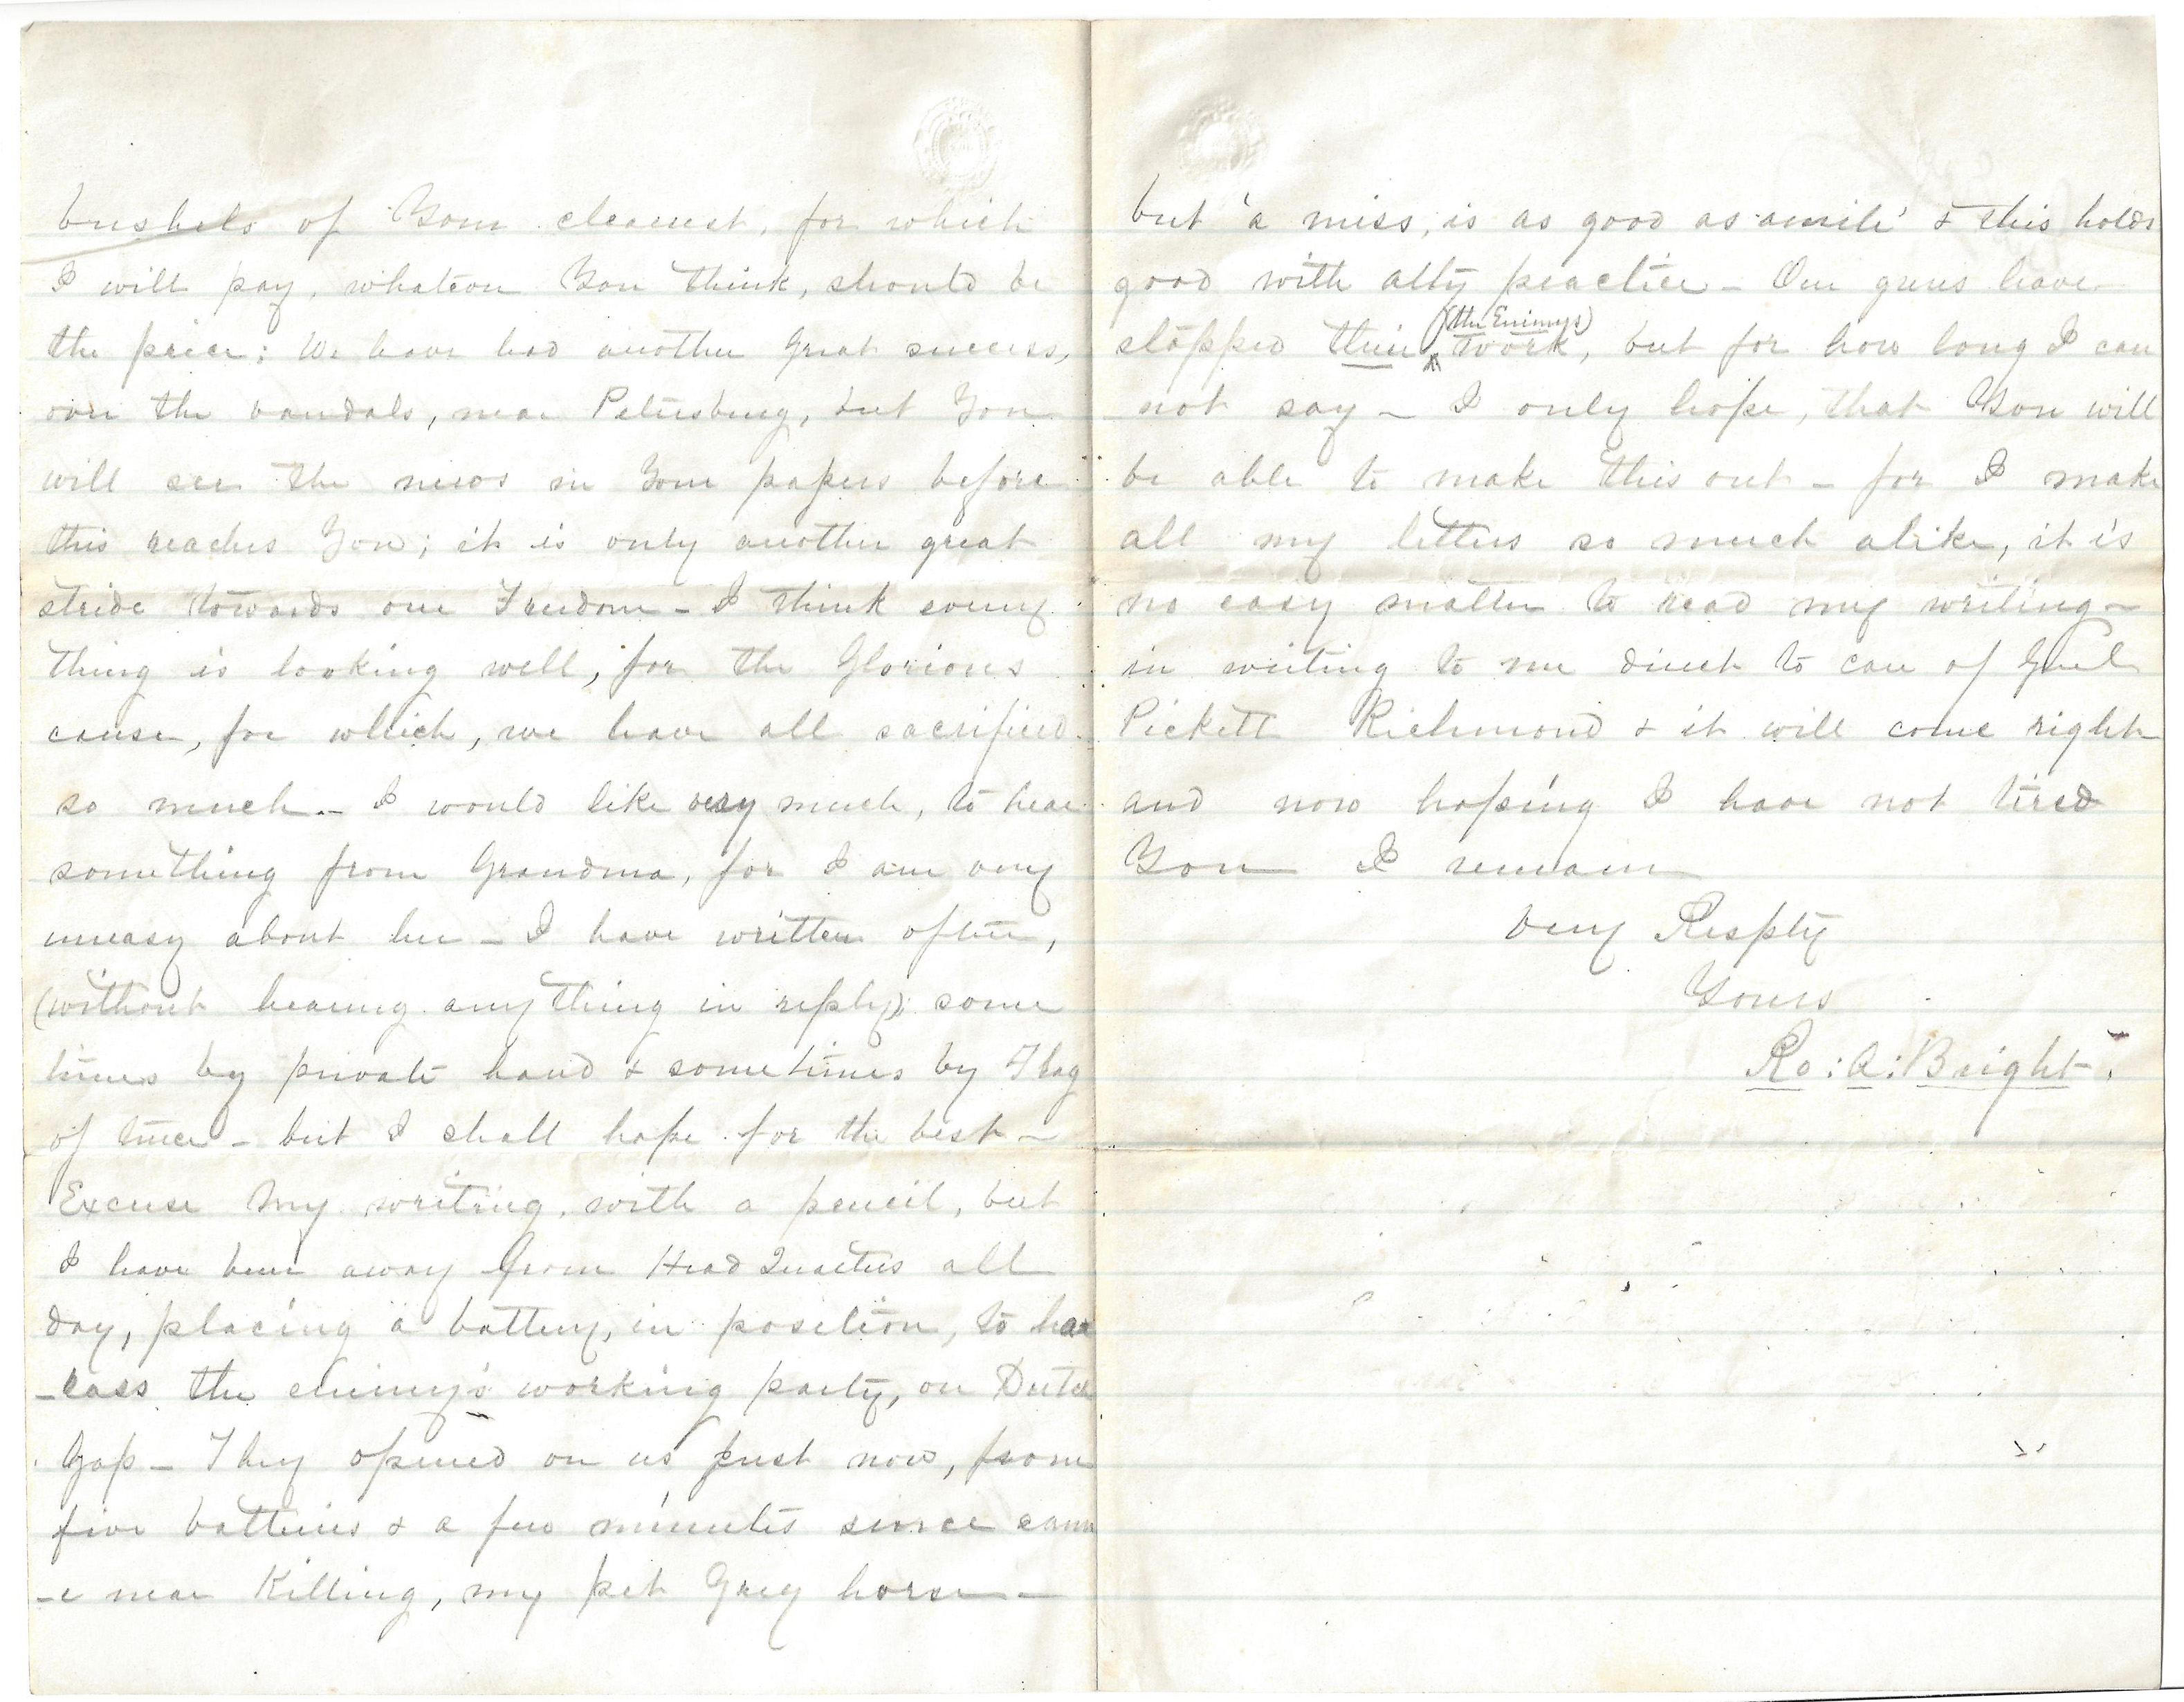 bushels of Your cleanest, for which
I will pay, whatever You think, should be
the price; We have had another Great success,
over the vandals, near Petersburg, but You
will see the news in Your papers before
this reaches You; it is only another great
stride towards our Freedom - I think every
thing is looking well, for the Glorious
cause, for which, we have all sacrificed
so much - I would like very much, to hear
something from Grandma, for I am very
uneasy about her - I have written often,
(without hearing anything in reply); some
times by private hand & sometimes by Flag
of truce - but I shall hope for the best -
Excuse my writing, with a pencil, but
I have been away from Head Quarters all
day, placing a battery, in position, to har
-rass the enimy's working party, on Dutch
Gap - They opened on us just now, from
five batteries & a few minutes since cam
-e near Killing, my pet Grey horse -
but 'a miss, is as good as a mile' & this holds
good with alty practice - Our guns have
stopped their (the Enimys) work, but for how long I can
not say - I only hope, that You will
be able to make this out - for I make
all my letters so much alike, it is
no easy matter to read my writing -
in writing to me direct to care of Genl
Pickett Richmond & it will come right
and now hoping I have not tired
You I remain
Very Resptly
Yours
Ro: A: Bright.